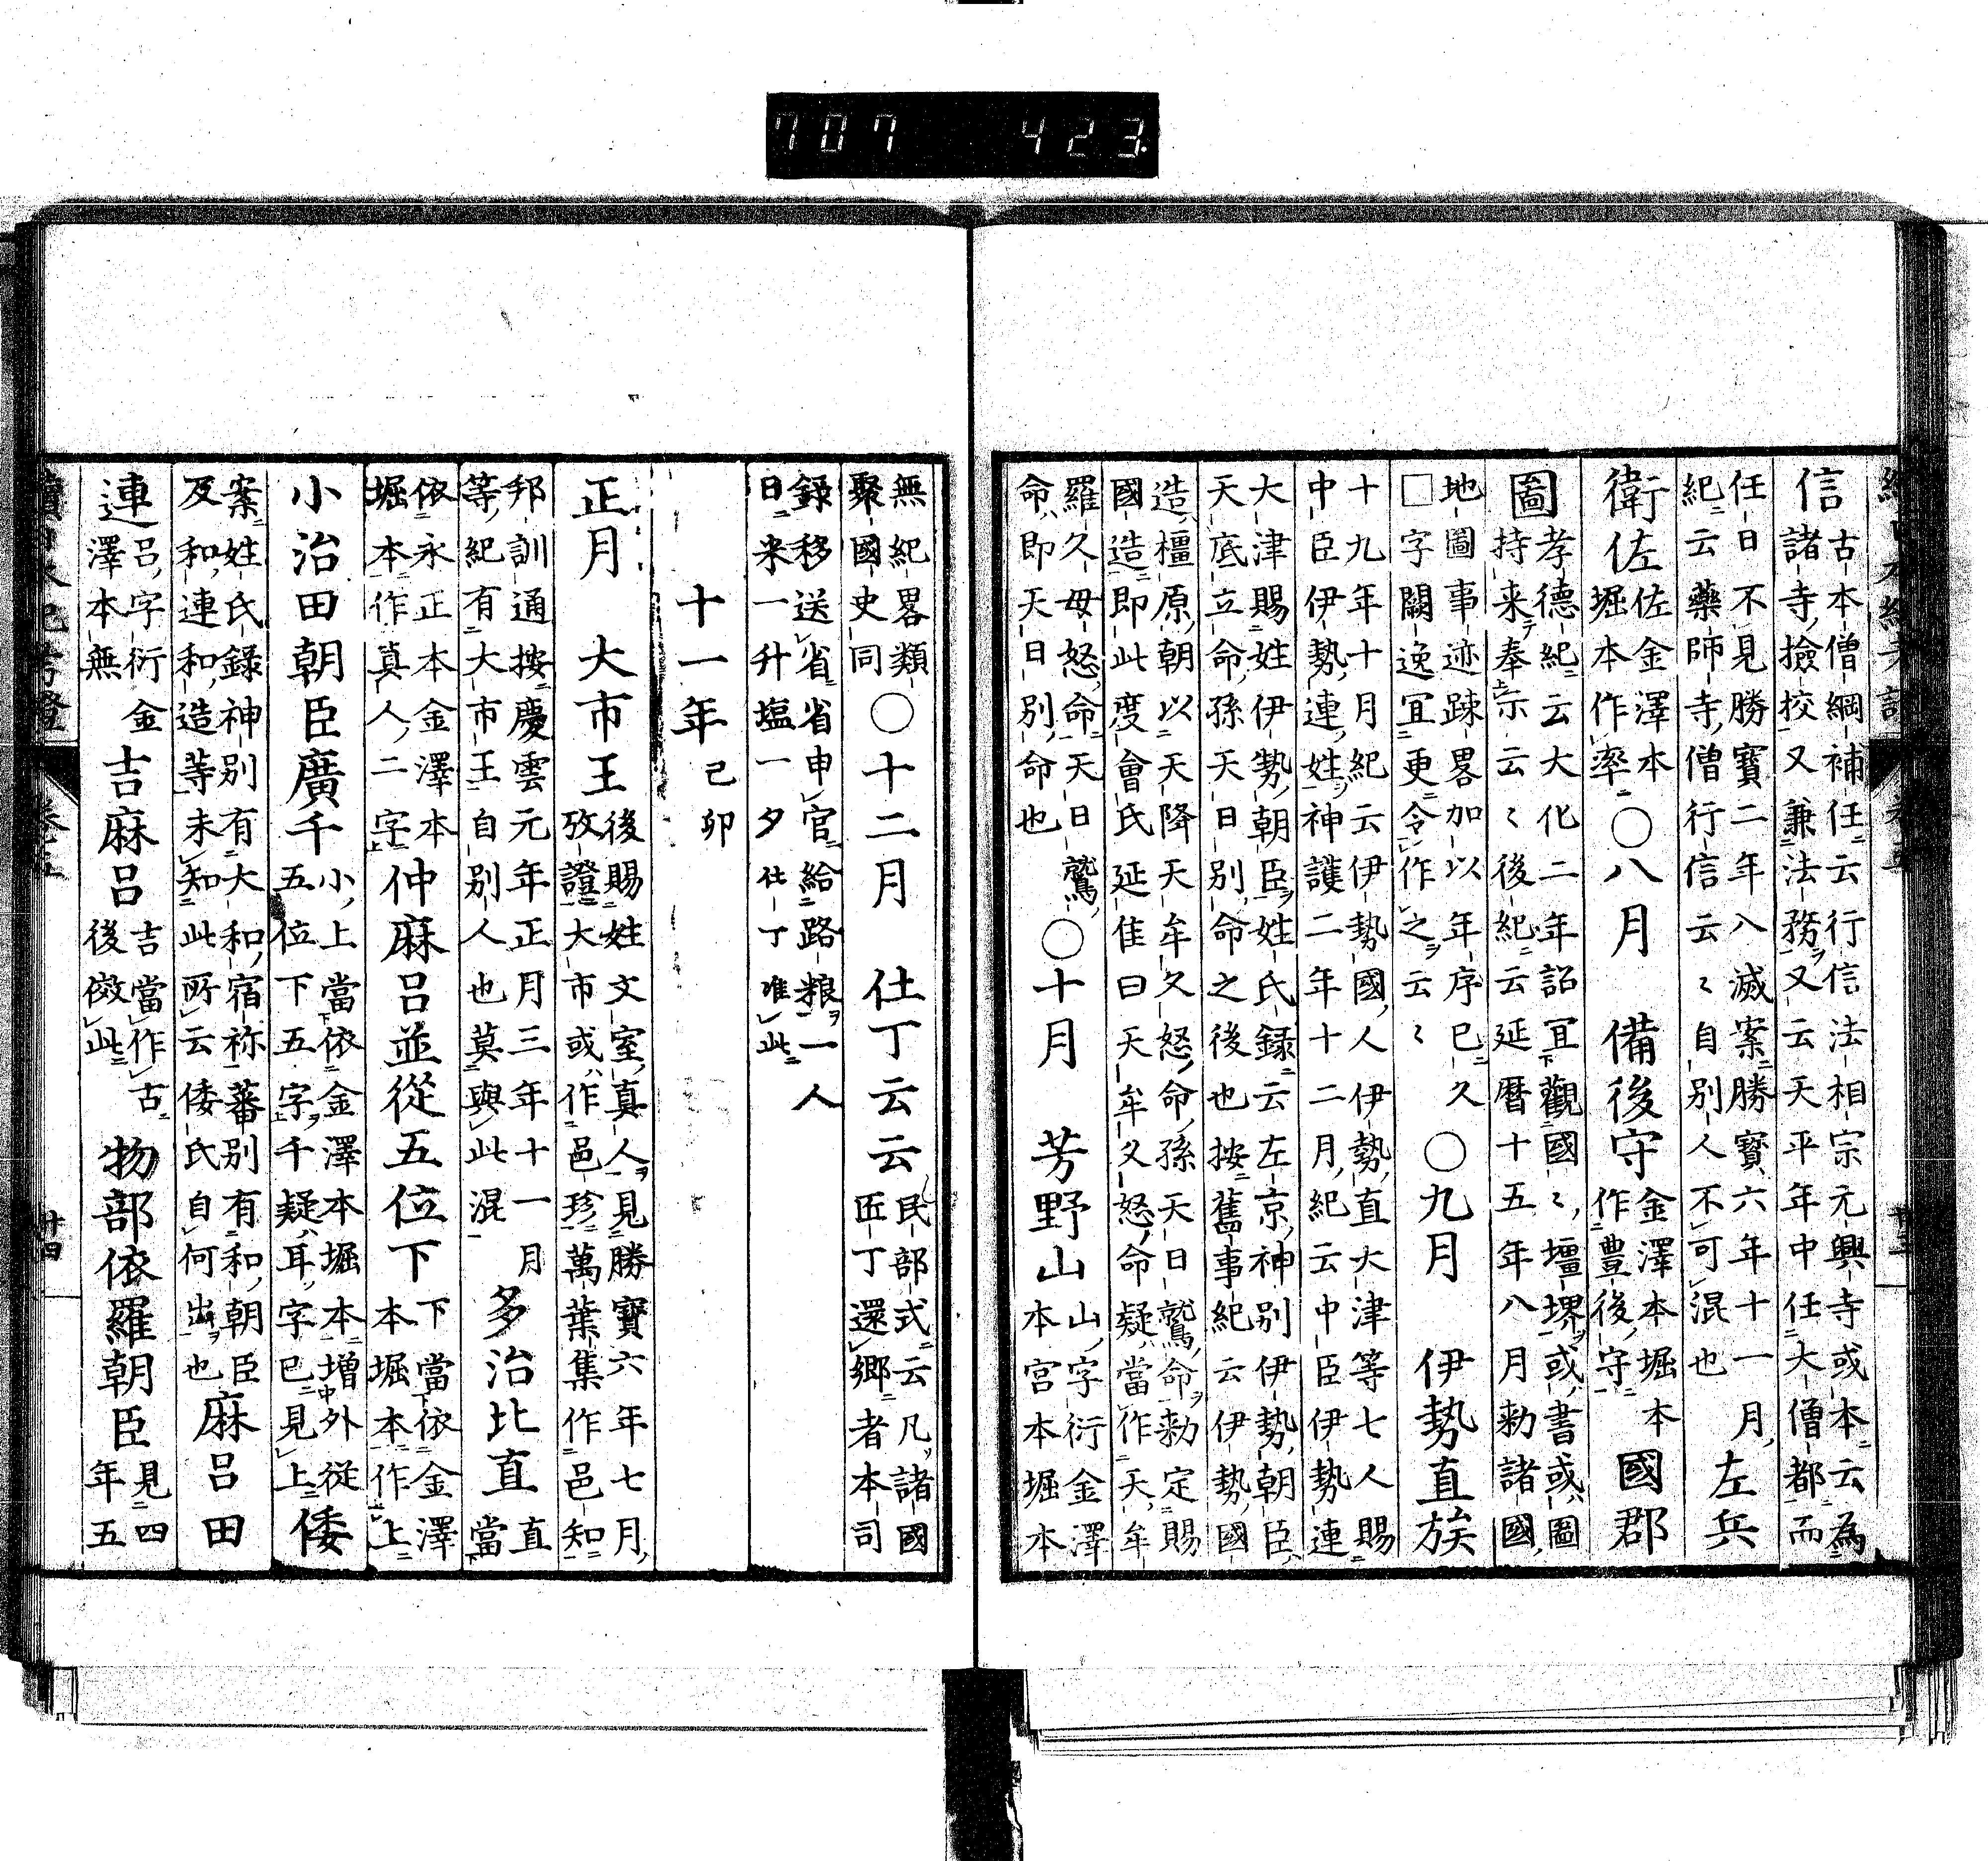 707 423
信 古本僧綱補任云行信法相宗元興寺或本云為
諸寺撿挍又兼法務又云天平年中任大僧都而
任日不見勝寶二年八滅案勝寶六年十一月
紀云藥師寺僧行信云〻自別人不可混也 左兵
衛佐 佐金澤本
堀本作率 〇八月 備後守 金澤本堀本
作豊後守 國郡
圖 孝德紀云大化二年詔宜觀國〻壃堺或書或圖
持来奉示云〻後紀云延暦十五年八月勅諸國
地圖事迹踈畧加以年序已久
□字闕逸宜更令作之云〻 〇九月 伊勢直族
十九年十月紀云伊勢國人伊勢直大津等七人賜
中臣伊勢連姓神護二年十二月紀云中臣伊勢連
大津賜姓伊勢朝臣姓氏録云左京神別伊勢朝臣
天底立命孫天日別命之後也按舊事紀云伊勢國
造橿原朝以天降天牟久怒命孫天日鷲命勅定賜
國造即此度會氏延佳曰天牟久怒命疑當作天牟
羅久母怒命天日鷲
命即天日別命也 〇十月 芳野山 山字衍金澤
本宮本堀本
無紀畧類
聚國史同 〇十二月 仕丁云云 民部式云凡諸國
匠丁還郷者本司
録移送省省申官給路粮一人
日米一升塩一夕仕丁准此
十一年 己卯
正月 大市王 後賜姓文室真人見勝寶六年七月
攷證大市或作邑珍萬葉集作邑知
邦訓通按慶雲元年正月三年十一月
等紀有大市王自別人也莫與此混 多治比直 直當
依永正本金澤本
堀本作真人二字 仲麻呂並從五位下 下當依金澤
本堀本作上
小治田朝臣廣千 小上當依金澤本堀本增外從
五位下五字千疑耳字已見上 倭
案姓氏録神別有大和宿祢蕃別有和朝臣
及和連和造等未知此所云倭氏自何出也 麻呂田
連 呂字衍金
澤本無 吉麻呂 吉當作古
後傚此 物部依羅朝臣 見四
年五